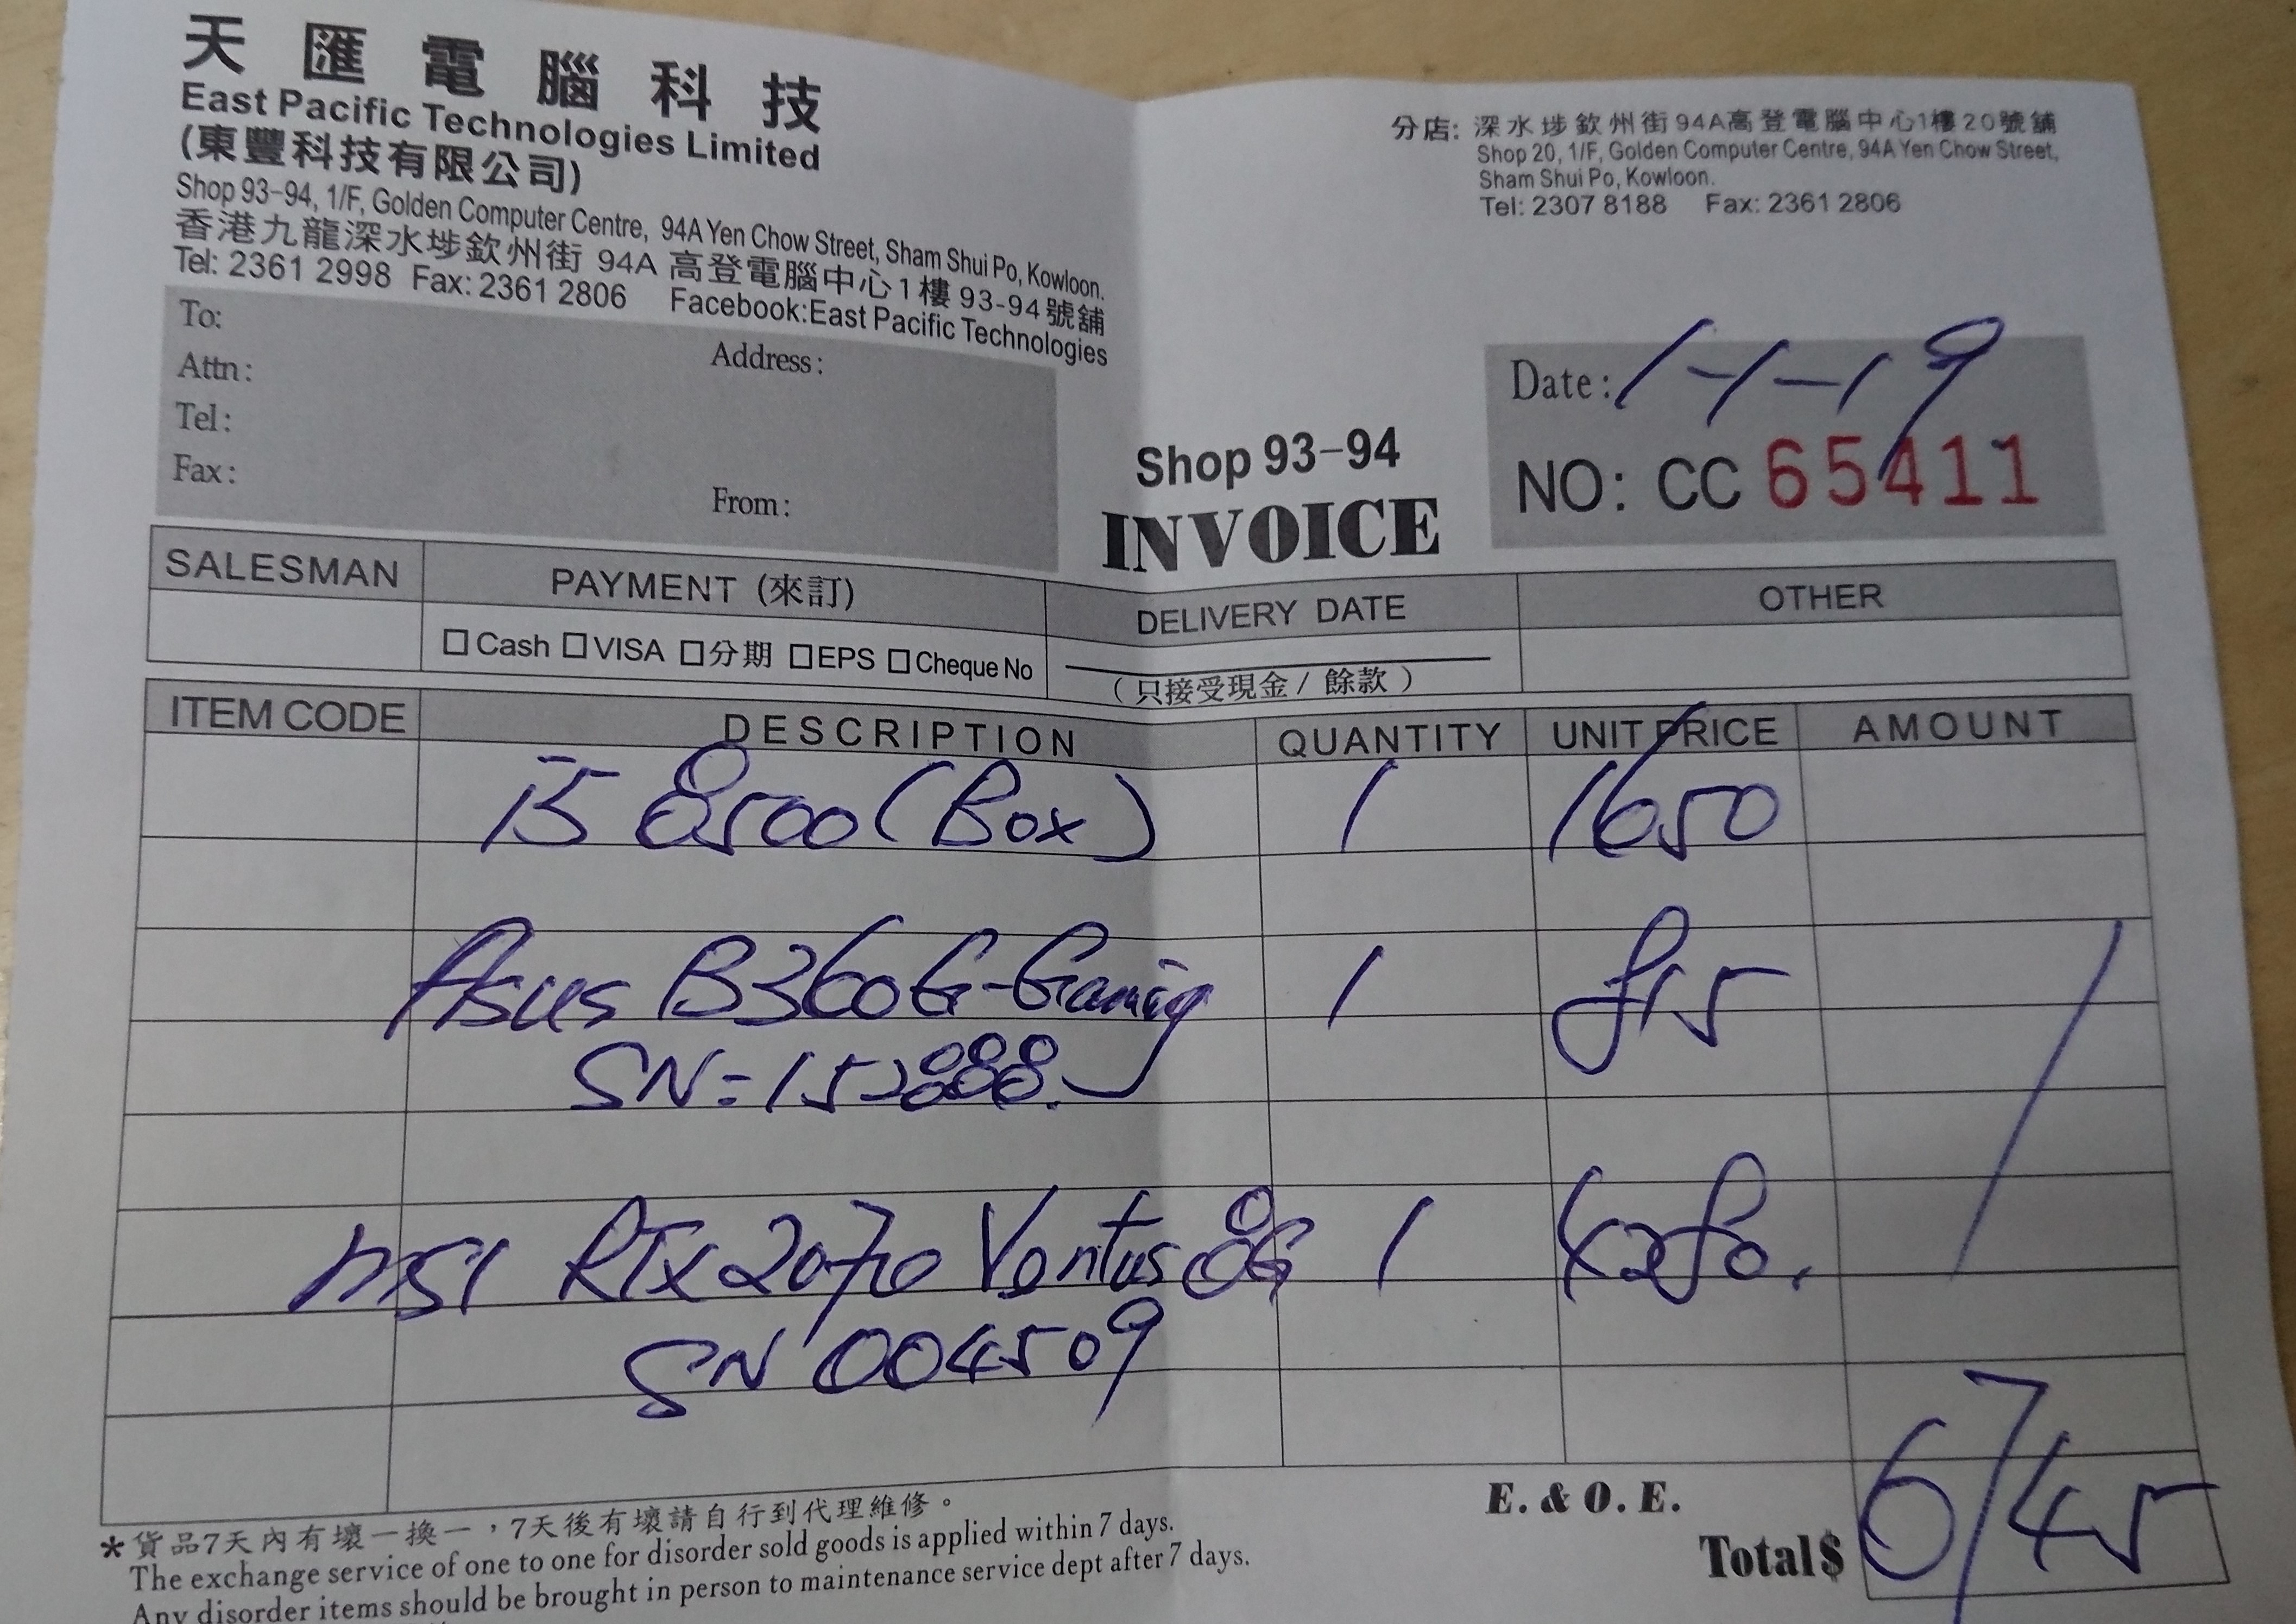 天匯電腦科技
East Pacific Technologies Limited
(東豐科技有限公司)
Shop 93-94, 1/F, Golden Computer Centre, 94A Yen Chow Street, Sham Shui Po, Kowloon.
香港九龍深水埗欽州街 94A 高登電腦中心1樓 93-94號舖
Tel: 2361 2998 Fax: 2361 2806 Facebook:East Pacific Technologies
分店: 深水埗欽州街94A高登電腦中心1樓20號舖
Shop 20, 1/F, Golden Computer Centre, 94A Yen Chow Street,
Sham Shui Po, Kowloon.
Tel: 2307 8188 Fax: 2361 2806
To:
Address:
Attn:
Tel:
Fax:
From:
Shop 93-94
INVOICE
Date: 1-1-19
NO: CC 65411
SALESMAN PAYMENT (來訂) DELIVERY DATE OTHER
Cash VISA 分期 EPS Cheque No
(只接受現金/餘款)
ITEM CODE DESCRIPTION QUANTITY UNIT PRICE AMOUNT
i5 8500 (Box) 1 1650
Asus B360G-Gaming 1 815
SN=152888.
MSI RTX2070 Ventus 8G 1 4280.
SN 004509
E. & O. E.
Total$ 6745
*貨品7天內有壞一換一，7天後有壞請自行到代理維修。
The exchange service of one to one for disorder sold goods is applied within 7 days.
Any disorder items should be brought in person to maintenance service dept after 7 days.